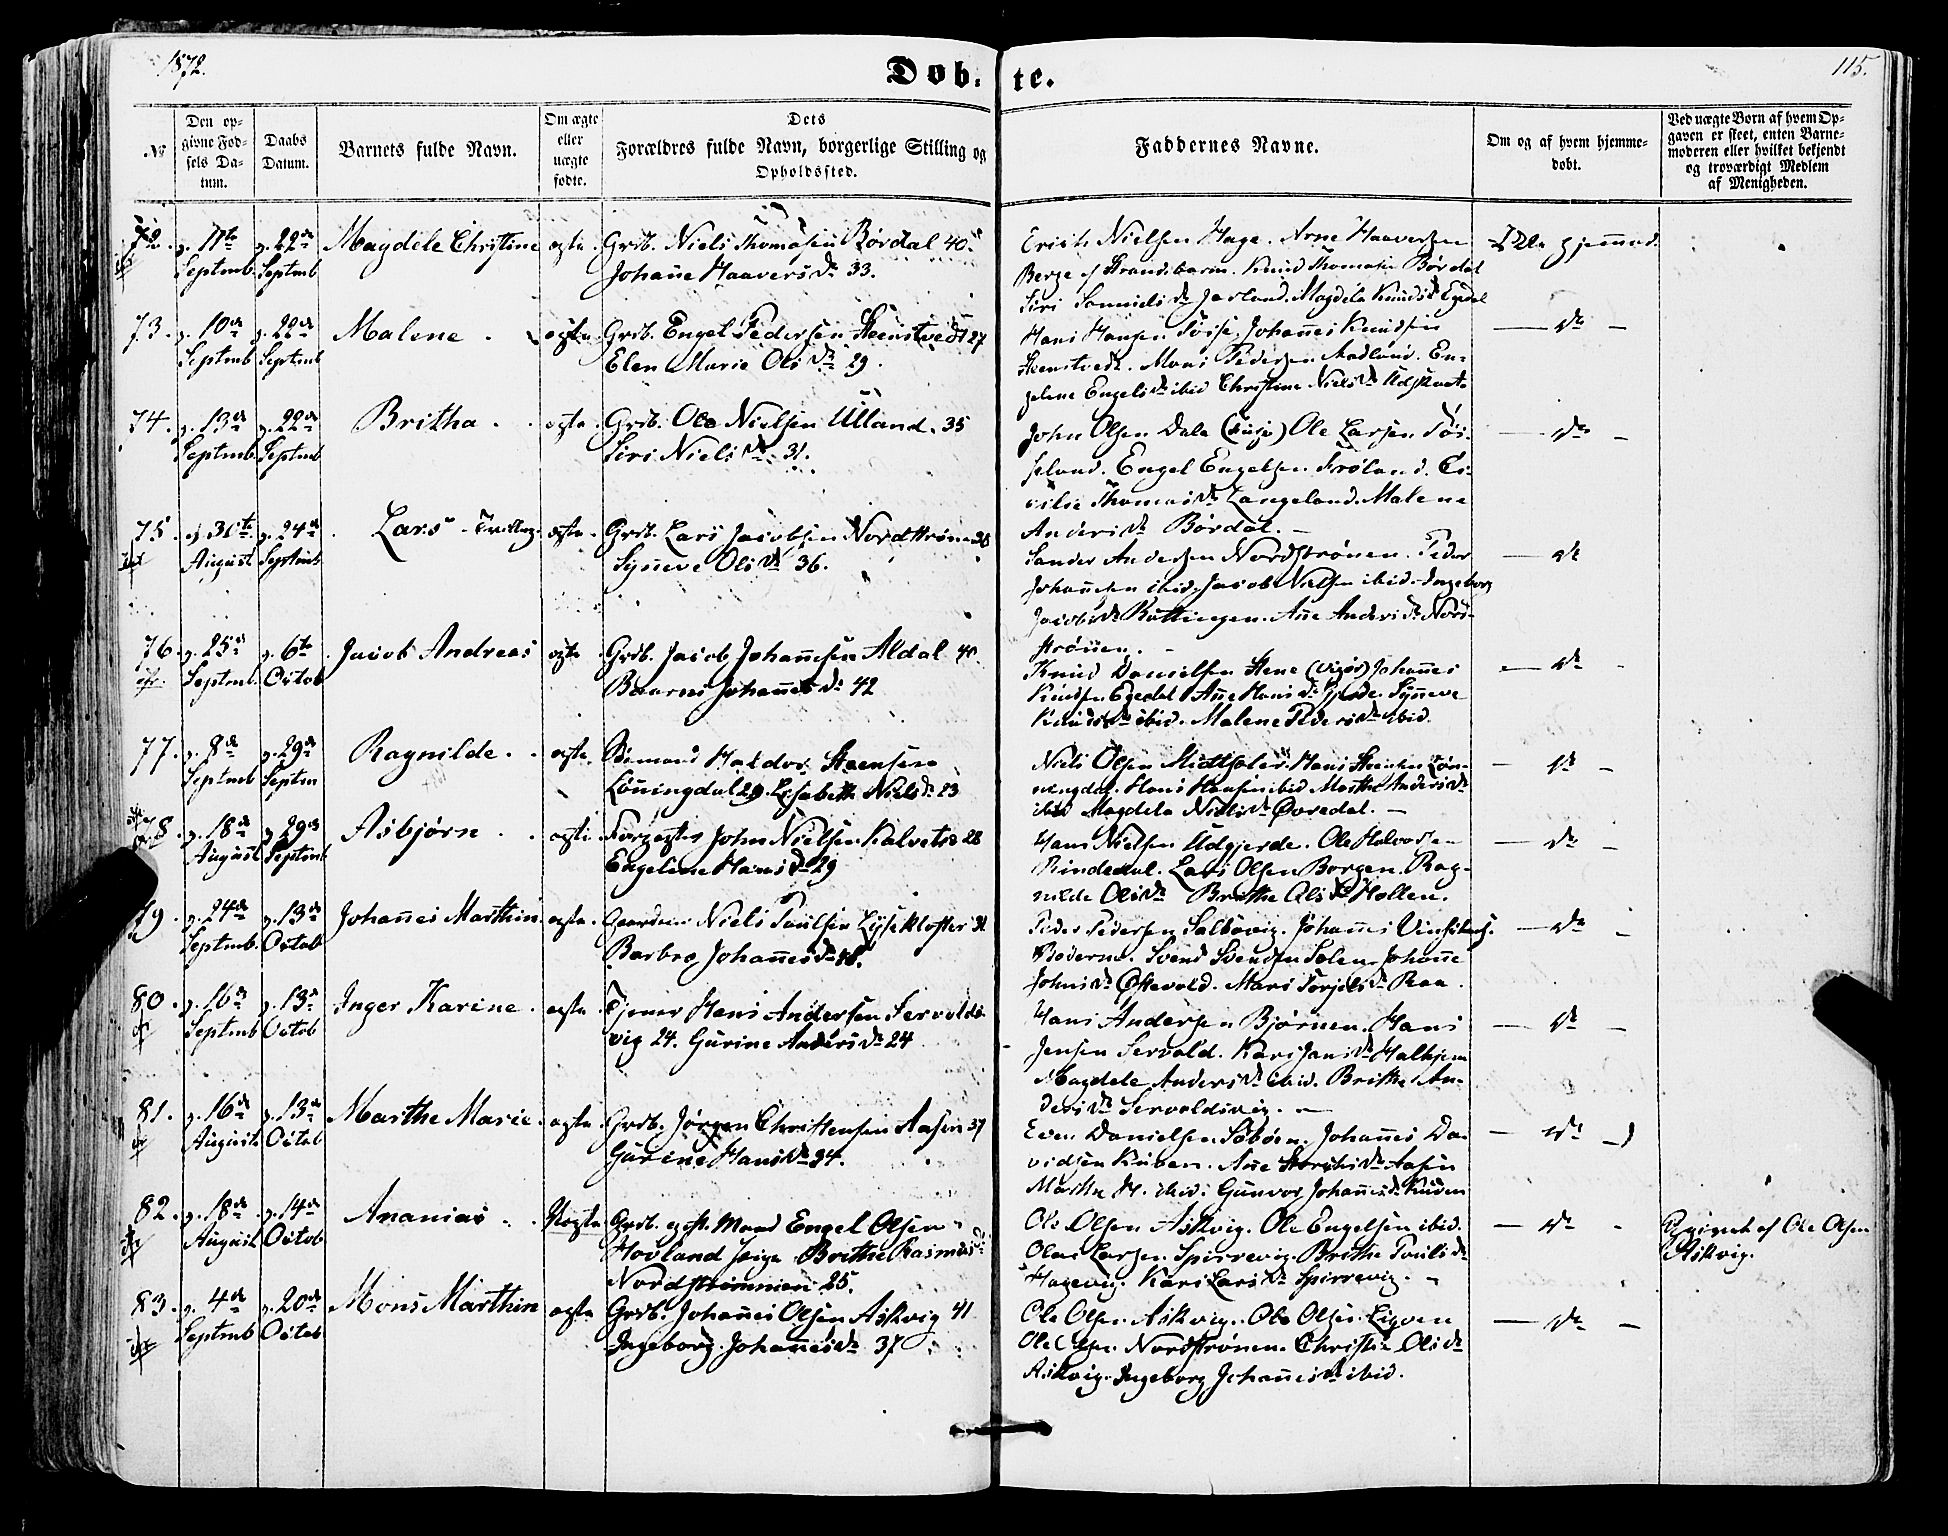 1872.
Døb. te.
115.
No
Den op-
givne Fød-
sels Da-
tum.
Daabs
Datum.
Barnets fulde Navn.
Om ægte
eller
uægte
fødte.
Dets
Forældres fulde Navn, borgerlige Stilling og
Opholdssted.
Faddernes Navne.
Om og af hvem hjemme-
døbt.
Ved uægte Børn af hvem Op-
gaven er skeet, enten Barne-
moderen eller hvilket bekjendt
og troværdigt Medlem
af Menigheden.
72. 11te Septmb 22de Septmb Magdele Christine ægte Grdb. Niels Thomasen Børdal 40.
Johanne Haavers Dr 33.
Erich Nielsen Hage. Arne Haaversen
Berge Strandebarm. Knud Thomasen Børdal
Siri Samuels Dr Magdela Knuds Dr Egedal
73. 10de Septmb 22de Septmb Malene ægte Grdb. Engel Pedersen Steenstvedt 27
Elen Marie Ols Dr 29.
Hans Hansen Johannes Knudsen
Mons Pedersen Madland. En-
gelene Engels Dr ibid Christine Niels Dr
Dr
74. 13de Septmb 22de Septmb Britha ægte Grdb. Ole Nielsen Ulland 35
Siri Niels Dr 31.
John Olsen Dale (Fusje) Ole Larsen
Engel Engelsen Frøland. Ce-
cilie Thomas Dr Langeland. Malene
Anders Dr Børdal.
Dr
75. 31te August 24de Septmb Lars Tvilling ægte Grdb. Lars Jacobsen Nordstrøn 38
Synneve Ols Dr 36.
Sander Andersen Nordstrønen. Peder
Johannesen ibid. Jacob Nielsen ibid. Ingeborg
Jacobs Dr Røttingen. Ane Anders Dr Nord-
strønen.
Dr
76. 25de Septmb 6te Octob Jacob Andreas ægte Grdb. Jacob Johannesen Aldal 40.
Johannes Dr 42
Knud Danielsen Johannes
Knudsen Egedal Ane Hans Dr Gjerde. Synneve
Knuds Dr ibid. Malene Peders Dr ibid.
Dr
77. 8de Septmb 29de Septm Ragnilde ægte Sømand Haldor Steensen
Løningdal 29. Lisabeth Niels Dr 23
Niels Olsen Hans Steensen Løn-
nengdal. Hans Hansen ibid Marthe Anders Dr
ibid Magdela Niels Dr Øvredal.
Dr
78. 18de August 29de Septmb Asbjørn ægte John Nielsen Kalvetræ 28
Engelene Hans Dr 29
Hans Nielsen Udgjerde. Ole Halvorsen
Rindedal. Lars Olsen Borgen. Rag-
nilde Ols Dr Brithe Ols Dr Hollen.
Dr
79. 24de Septmb. 13de Octob Johannes Marthin ægte Niels Poulsen Lysekloster 31
Barbro Johannes Dr 48.
Peder Pedersen Sælbøvig. Johannes
Svend Svendsen Solen. Johanne
Johns Dr Øksevold. Mari Torjels Dr Raa.
Dr
80. 16de Septmb 13de Octob Inger Karine ægte Tjener Hans Andersen Servolds-
vig 24. Gurine Anders Dr 24
Hans Andersen Bjørnen. Hans
Jensen Servold. Kari Jans Dr Halhjem
Magdele Anders Dr ibid. Brithe An-
ders Dr Servoldsvig.
Dr
81. 16de August 13de Octob Marthe Marie ægte Grdb. Jørgen Christensen Aasen 37
Gurine Hans Dr 34.
Even Danielsen Søbøen. Johannes Da-
vidsen Kuven. Ane Dr Aasen
Marthe H. ibid. Gunvor Johannes Dr Kuven
Dr
82. 18de August 14de Octob Ananias Uægte Grdb. gift Mand Engel Olsen
Hovland Pige Brithe Rasmus Dr
Nordstrimmen 25.
Ole Olsen Askvig. Ole Engelsen ibid.
Olai Larsen Spirrevig. Brithe Pouls Dr
Hagevig. Kari Lars Dr Spirrevig.
Dr
Opgivet af Ole Olsen
Askvig.
83. 4de Septmb 20de Octob Mons Marthin ægte Grdb. Johannes Olsen Askvig 41
Ingeborg Johannes Dr 37
Ole Olsen Askvig. Ole Olsen Ligven
Ole Olsen Nordstrønen. Christi Ols Dr
Askvig. Ingeborg Johannes Dr ibid.
Dr